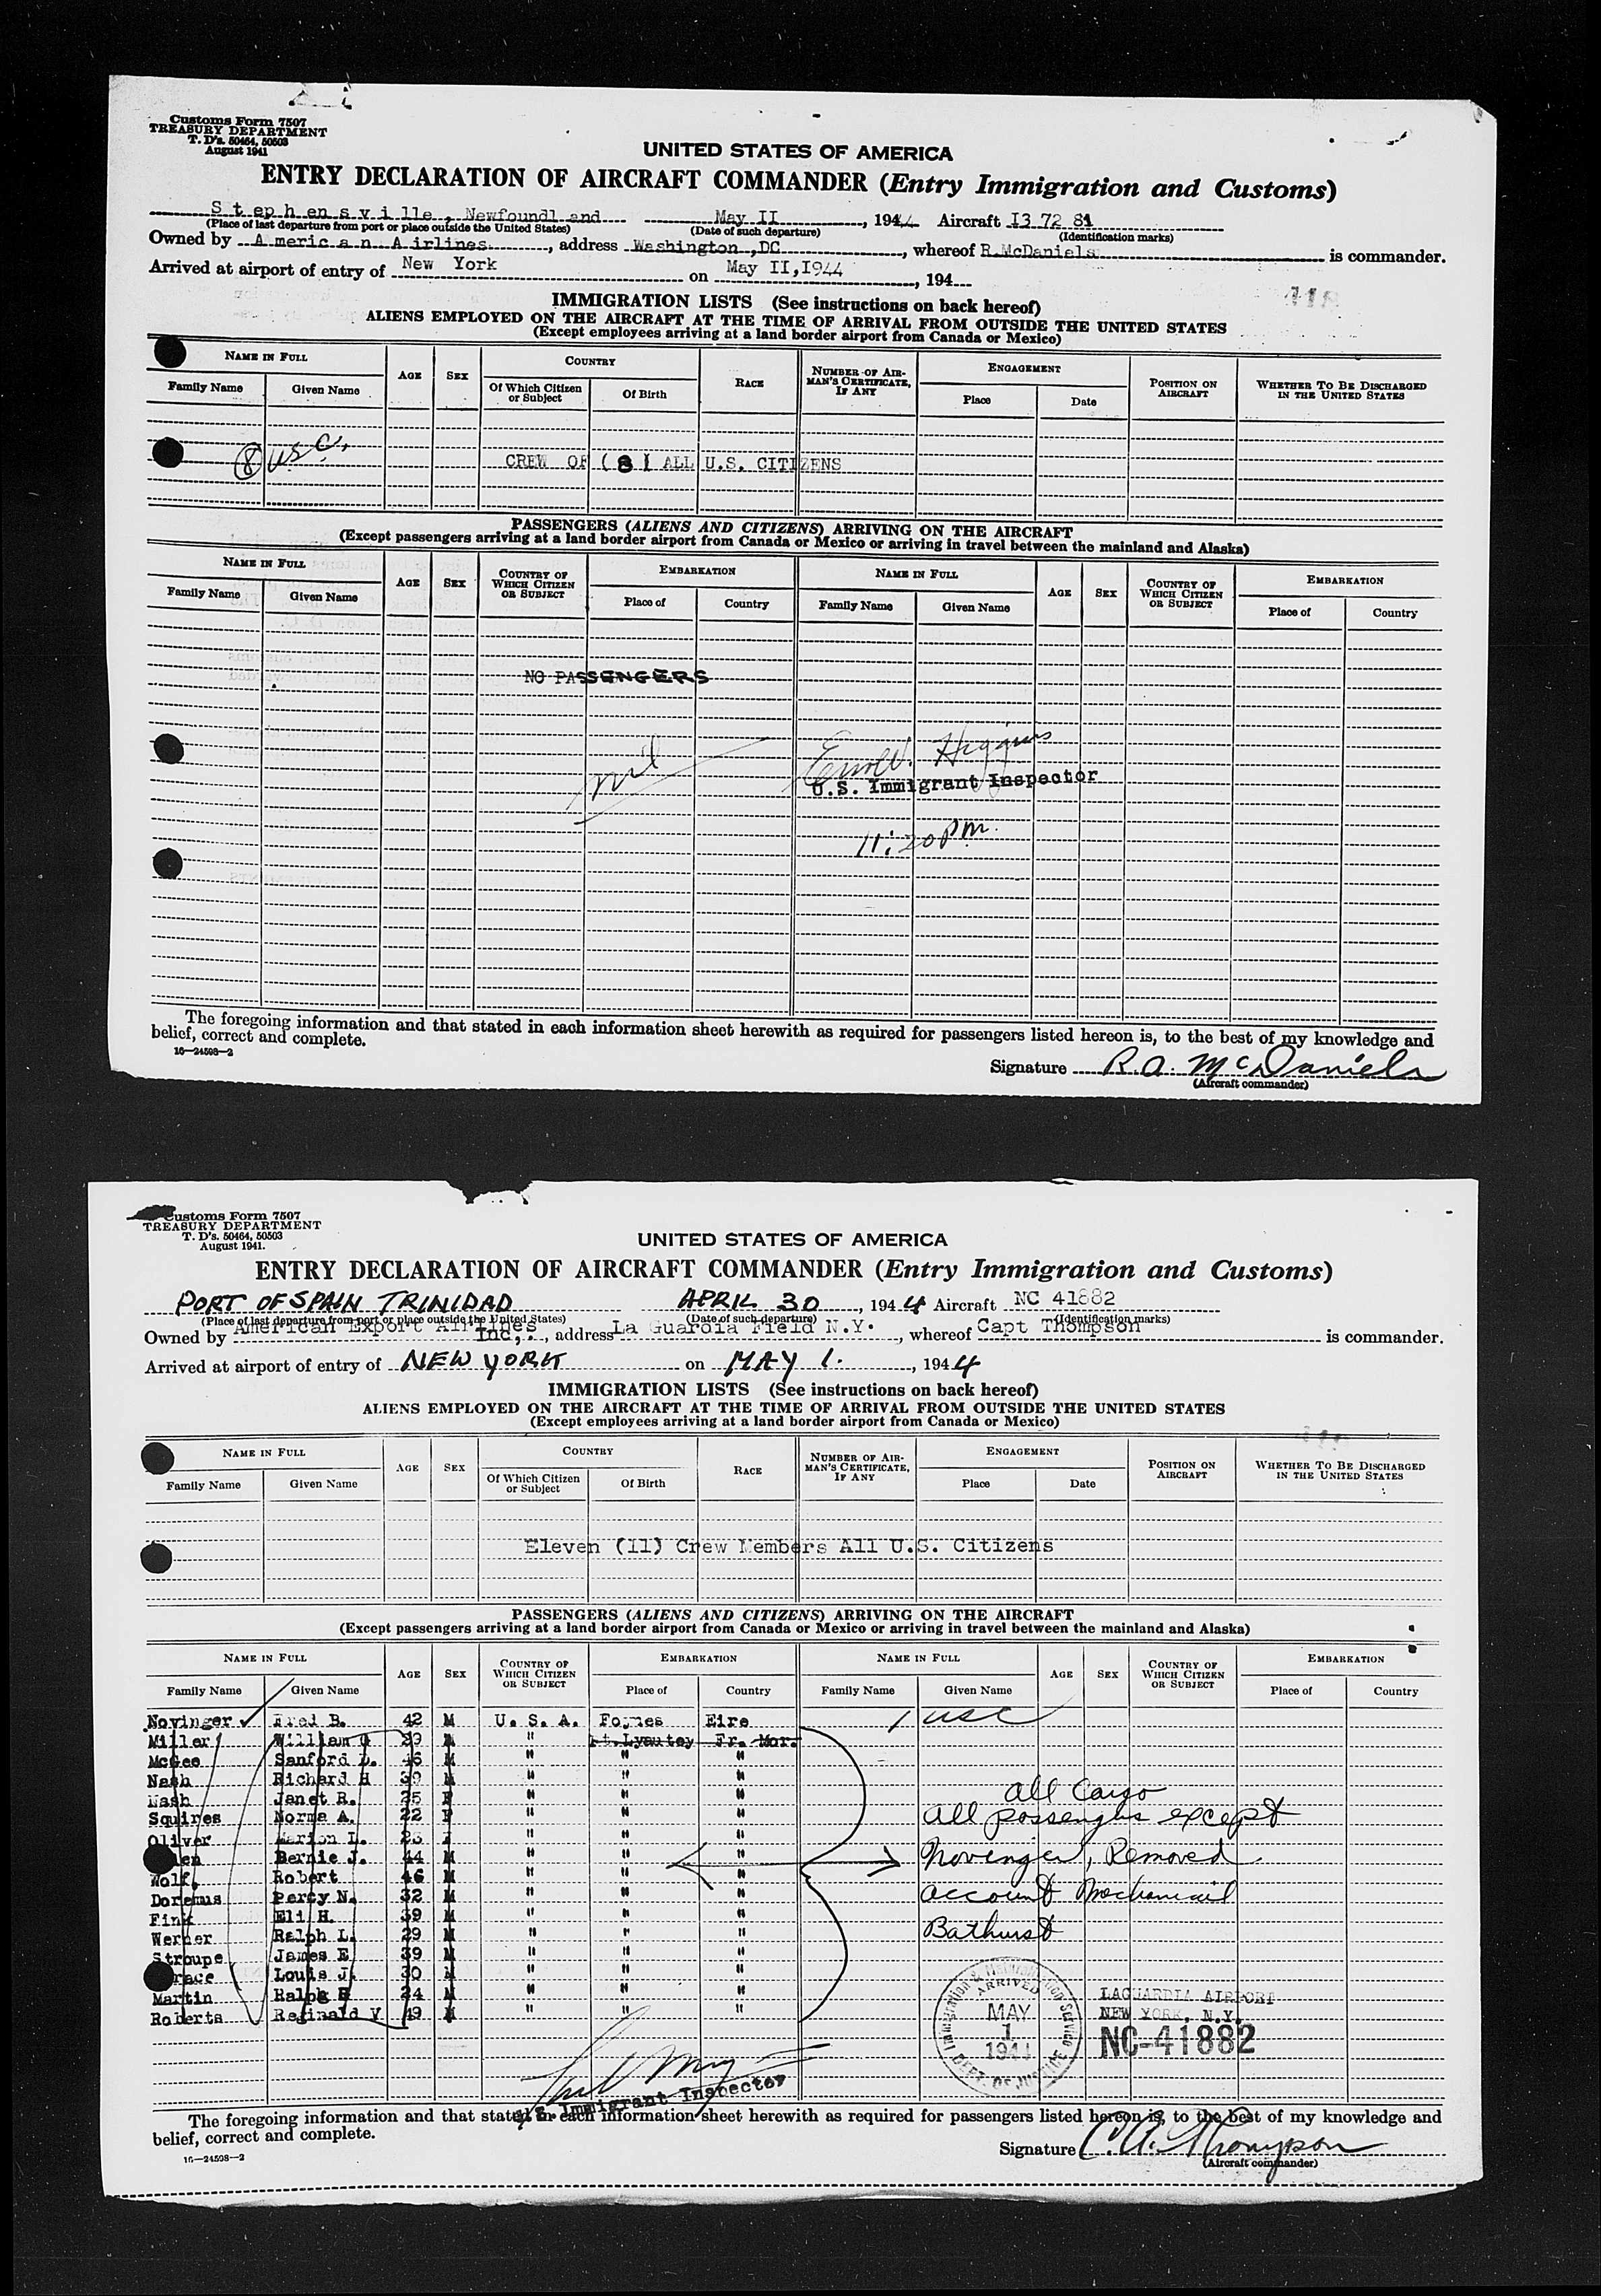 Customs Form 7507
TREASURY DEPARTMENT
T. D's. 50464, 50503
August 1941
UNITED STATES OF AMERICA
ENTRY DECLARATION OF AIRCRAFT COMMANDER (Entry Immigration and Customs)
Stephensville, Newfoundland May II, 1944 Aircraft I3 72 81
(Place of last departure from port or place outside the United States) (Date of such departure) (Identification marks)
Owned by American Airlines, address Washington,DC, whereof R.McDaniels is commander.
Arrived at airport of entry of New York on May II,I944, 194
IMMIGRATION LISTS (See instructions on back hereof)
ALIENS EMPLOYED ON THE AIRCRAFT AT THE TIME OF ARRIVAL FROM OUTSIDE THE UNITED STATES
(Except employees arriving at a land border airport from Canada or Mexico)
NAME IN FULL AGE SEX COUNTRY RACE NUMBER OF AIRMAN'S CERTIFICATE, IF ANY ENGAGEMENT POSITION ON AIRCRAFT WHETHER TO BE DISCHARGED IN THE UNITED STATES
Family Name Given Name Of Which Citizen or Subject Of Birth Place Date
8 usc.
CREW OF (8) ALL U.S. CITIZENS
PASSENGERS (ALIENS AND CITIZENS) ARRIVING ON THE AIRCRAFT
(Except passengers arriving at a land border airport from Canada or Mexico or arriving in travel between the mainland and Alaska)
NAME IN FULL AGE SEX COUNTRY OF WHICH CITIZEN OR SUBJECT EMBARKATION NAME IN FULL AGE SEX COUNTRY OF WHICH CITIZEN OR SUBJECT EMBARKATION
Family Name Given Name Place of Country Family Name Given Name Place of Country
NO PASSENGERS
nil
Higgins
U.S. Immigrant Inspector
11:20 Pm.
The foregoing information and that stated in each information sheet herewith as required for passengers listed hereon is, to the best of my knowledge and
belief, correct and complete.
16—24508—2
Signature R.A. McDaniels
(Aircraft commander)
Customs Form 7507
TREASURY DEPARTMENT
T. D's. 50464, 50503
August 1941.
UNITED STATES OF AMERICA
ENTRY DECLARATION OF AIRCRAFT COMMANDER (Entry Immigration and Customs)
PORT OF SPAIN TRINIDAD APRIL 30, 1944 Aircraft NC 41882
(Place of last departure from port or place outside the United States) (Date of such departure) (Identification marks)
Owned by American Export Airlines Inc,., address La Guardia Field N.Y., whereof Capt Thompson is commander.
Arrived at airport of entry of NEW YORK on MAY 1., 1944
IMMIGRATION LISTS (See instructions on back hereof)
ALIENS EMPLOYED ON THE AIRCRAFT AT THE TIME OF ARRIVAL FROM OUTSIDE THE UNITED STATES
(Except employees arriving at a land border airport from Canada or Mexico)
NAME IN FULL AGE SEX COUNTRY RACE NUMBER OF AIRMAN'S CERTIFICATE, IF ANY ENGAGEMENT POSITION ON AIRCRAFT WHETHER TO BE DISCHARGED IN THE UNITED STATES
Family Name Given Name Of Which Citizen or Subject Of Birth Place Date
Eleven (11) Crew Members All U.S. Citizens
PASSENGERS (ALIENS AND CITIZENS) ARRIVING ON THE AIRCRAFT
(Except passengers arriving at a land border airport from Canada or Mexico or arriving in travel between the mainland and Alaska)
NAME IN FULL AGE SEX COUNTRY OF WHICH CITIZEN OR SUBJECT EMBARKATION NAME IN FULL AGE SEX COUNTRY OF WHICH CITIZEN OR SUBJECT EMBARKATION
Family Name Given Name Place of Country Family Name Given Name Place of Country
Novinger Fred B. 42 M U. S. A. Foynes Eire 1 usc
Miller William G 29 M " Pt. Lyautey Fr. Mor.
McGee Sanford L. 46 M " " "
Nash Richard H 39 M " " "
Nash Janet R. 25 F " " "
Squires Norma A. 22 F " " "
Oliver Marion L. 23 F " " "
Bernie J. 44 M " " "
Wolf, Robert 46 M " " "
Doremus Percy N. 32 M " " "
Fink Eli H. 39 M " " "
Werner Ralph L. 29 M " " "
Stroupe James E 39 M " " "
Louis J. 30 M " " "
Martin Ralph E 24 M " " "
Roberts Reginald V 49 M " " "
All Cargo
All passengers except
Novinger, Removed
account Mechanical
Bathurst
Immigration & Naturalization Service
ARRIVED
MAY
1
1944
DEPT. OF JUSTICE
LAGUARDIA AIRPORT
NEW YORK, N.Y.
NC-41882
U.S. Immigrant Inspector
The foregoing information and that stated in each information sheet herewith as required for passengers listed hereon is, to the best of my knowledge and
belief, correct and complete.
16—24508—2
Signature C.A. Thompson
(Aircraft commander)